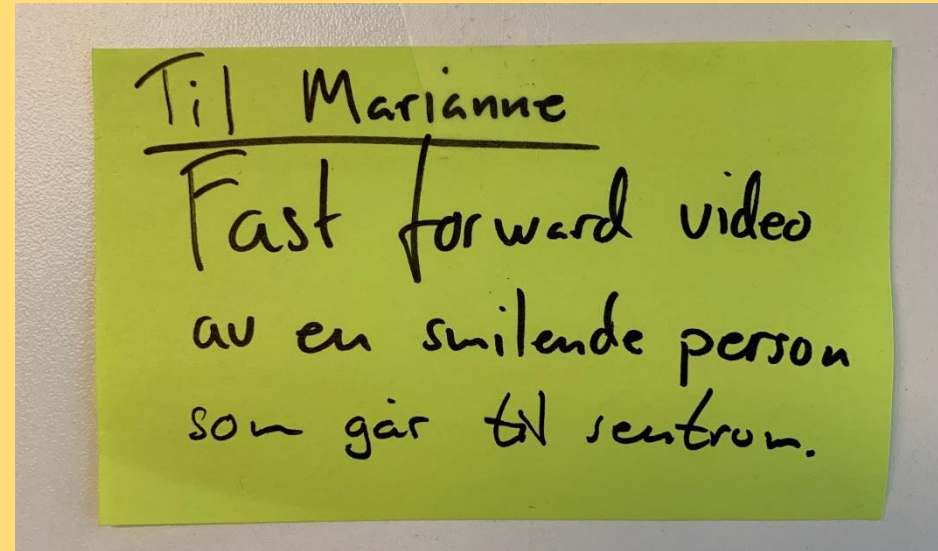 Til Marianne
Fast forward video
av en smilende person
som går til sentrum.